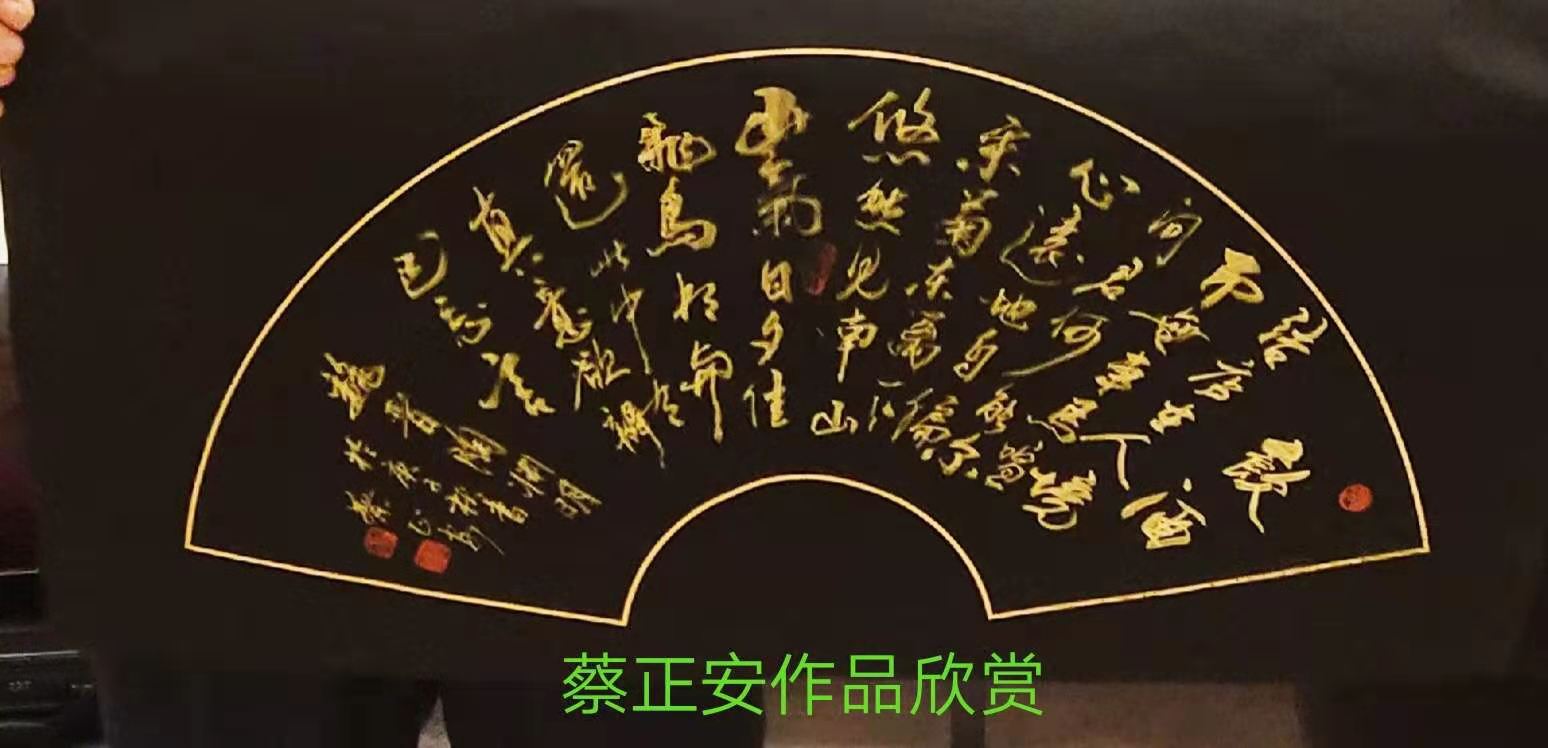 飲酒
结庐在人境
而無車馬喧
问君何能尔
心遠地自偏
采菊东篱下
悠然见南山
山氣日夕佳
飛鳥相与
還此中有
真意欲辨
已忘言
晋陶渊明
蔡正安
蔡正安作品欣赏